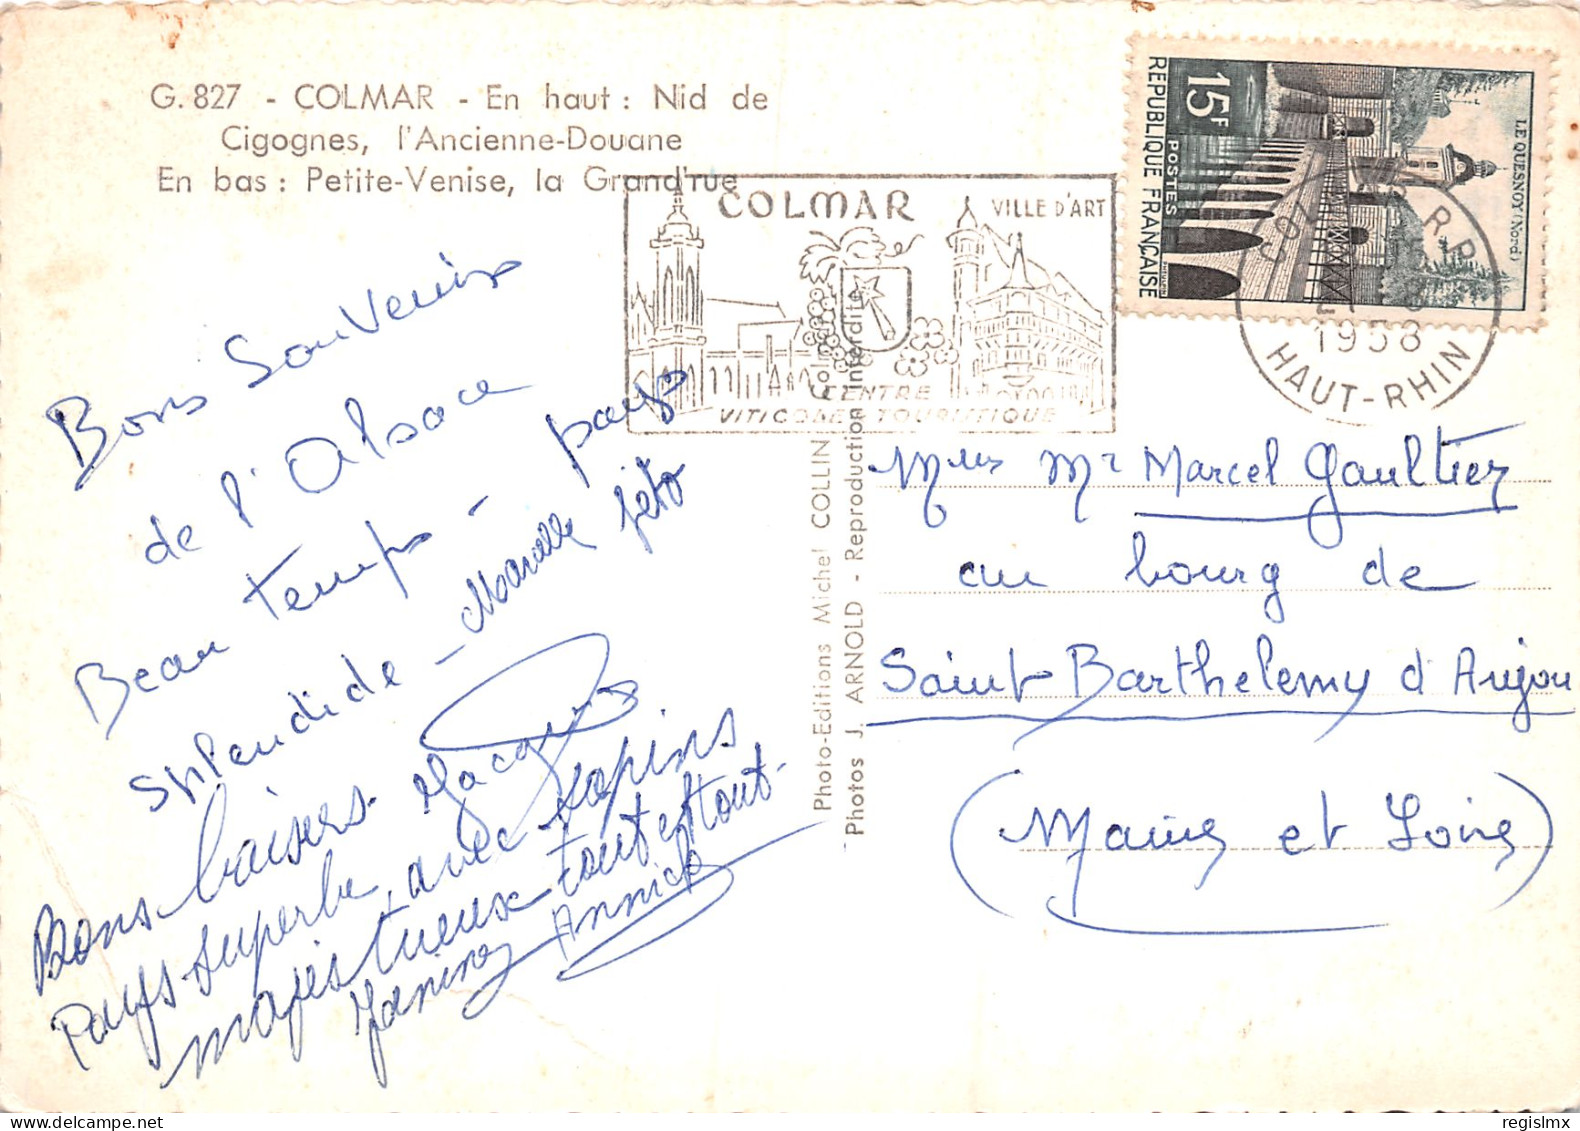 G. 827 - COLMAR - En haut : Nid de
Cigognes, l'Ancienne-Douane
En bas : Petite-Venise, la Grand'rue
COLMAR
VILLE D'ART
CENTRE
VITICOLE TOURISTIQUE
REPUBLIQUE FRANÇAISE
15F
POSTES
LE QUESNOY (Nord)
COLMAR R.P.
1958
HAUT-RHIN
Bons Souvenirs
de l'Alsace
Beau temps - pays
splendide -
Bons baisers. Jacques
Pays superbe, avec sapins
majestueux tout et tout -
Janine Annick
Photo-Editions Michel COLLIN
Photos J. ARNOLD - Reproduction Interdite
Mr Marcel Gaultier
au bourg de
Saint Barthelemy d'Anjou
(Maine et Loire)
regislmx